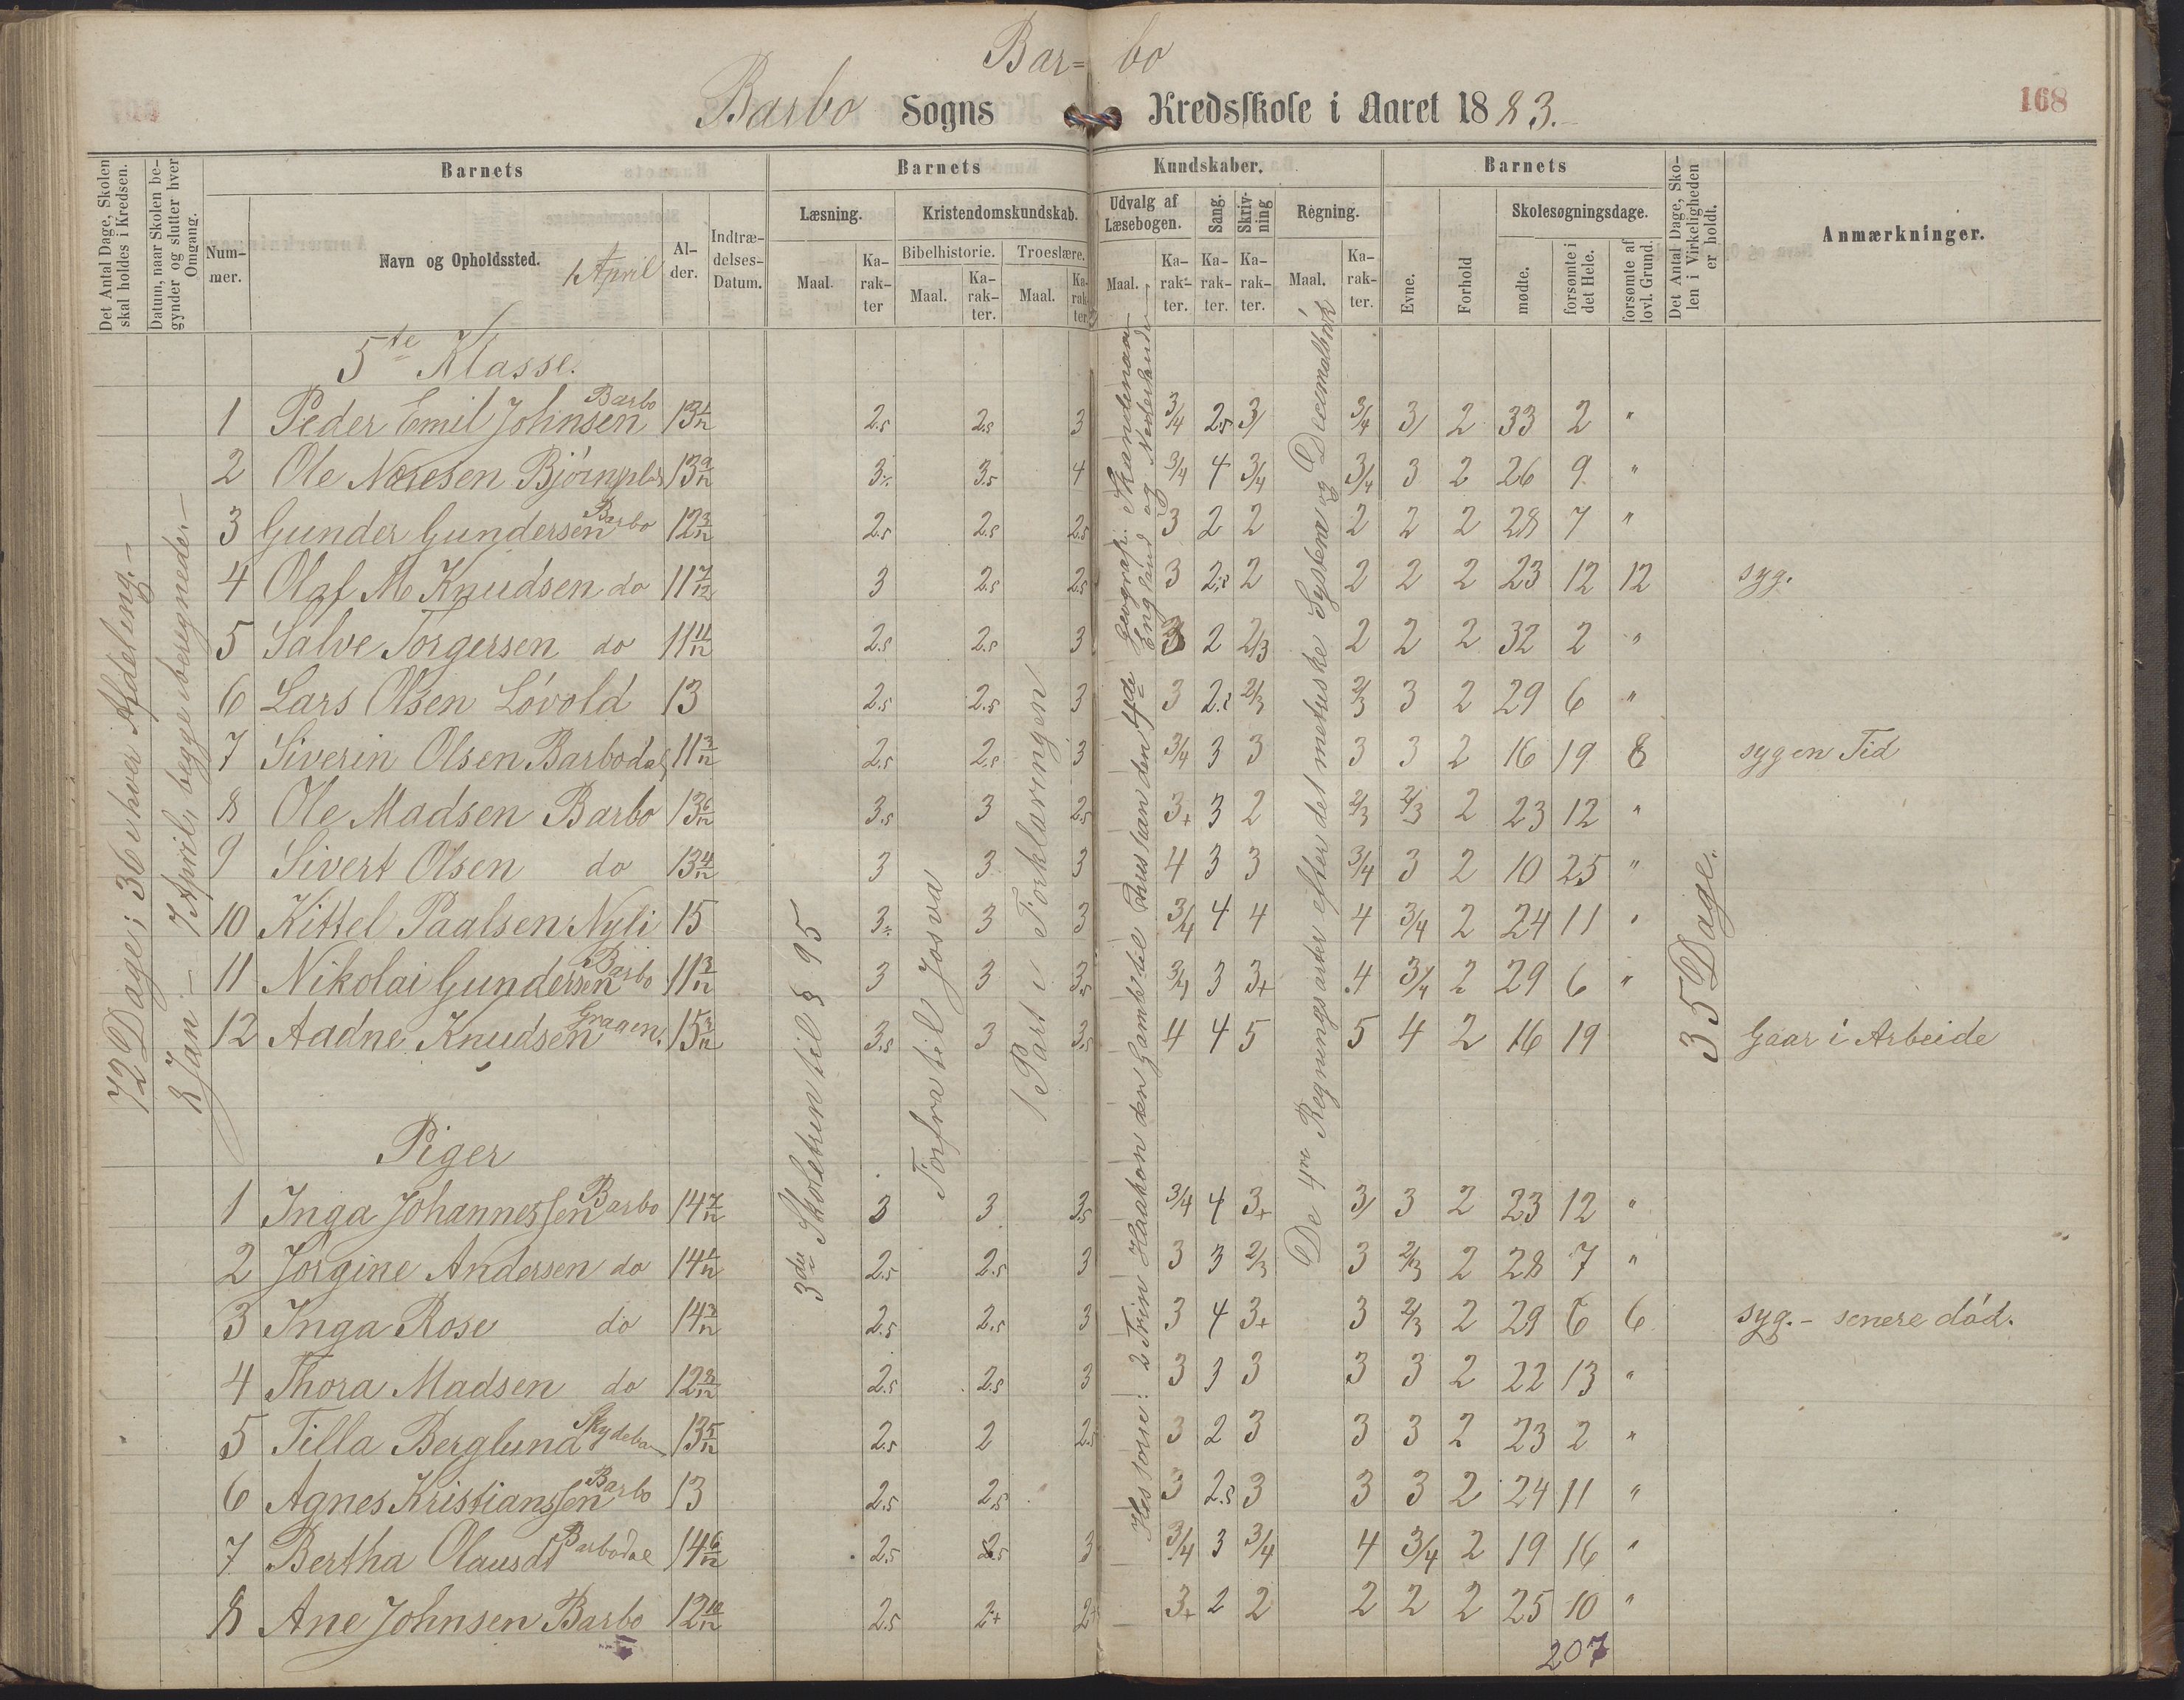 Bar= bo
Barbo Sogns Kredsskole i Aaret 1883.
168
Det Antal Dage, Skolen skal holdes i Kredsen.
Datum, naar Skolen begynder og slutter hver Omgang.
Barnets
Nummer.
Navn og Opholdssted.
1 April
Alder.
Indtrædelses-Datum.
Barnets Kundskaber.
Læsning.
Maal.
Karakter
Kristendomskundskab.
Bibelhistorie.
Maal.
Karakter.
Troeslære.
Maal.
Karakter
Udvalg af Læsebogen.
Maal.
Karakter.
Sang.
Karakter.
Skrivning
Karakter.
Regning.
Maal.
Karakter.
Barnets
Evne.
Forhold
Skolesøgningsdage.
mødte.
forsømte i det Hele.
forsømte af lovl. Grund.
Det Antal Dage, Skolen i Virkeligheden er holdt.
Anmærkninger.
72 Dage; 36 i hver Afdeling.-
8 Jan - 7 April, begge iberegnede.-
3die Skoletrin til § 95
Forfra til Josva
1 Part i Forklaringen
Historie: 2 Trin Haakon den Gamle til Christian den 4de
Geografi: Skandinavien England og Nederlandene
De 4re Regningsarter efter det metriske System og Decimalbrøk
35 Dage.
5te Klasse.
1 Peder Emil Johnsen Barbo 13 4/12 2.5 2.5 3 3/4 2.5 3/ 3/4 3/ 2 33 2 "
2 Ole Næresen Bjørnpls 13 9/12 3÷ 3.5 4 3/4 4 3/4 3/4 3 2 26 9 "
3 Gunder Gundersen Barbo 12 3/12 2.5 2.5 2.5 3 2 2 2 2 2 28 7 "
4 Olaf M Knudsen do 11 7/12 3 2.5 2.5 3 2.5 2 2 2 2 23 12 12 syg.
5 Salve Torgersen do 11 11/12 2.5 2.5 3 3 2 2/3 2 2 2 32 2 "
6 Lars Olsen Løvold 13 2.5 2.5 3 3 2.5 2/3 2/3 3 2 29 6 "
7 Siverin Olsen Barbodal 11 3/12 2.5 2.5 3 3/4 3 3 3 3 2 16 19 8 syg en Tid
8 Ole Madsen Barbo 13 6/12 3.5 3 2.5 3+ 3 2 2/3 2/3 2 23 12 "
9 Sivert Olsen do 13 4/12 3 3 3 4 3 3 3/4 3 2 10 25 "
10 Kittel Paalsen Nyli 15 3÷ 3 3 3/4 4 4 4 3/4 2 24 11 "
11 Nikolai Gundersen Barbo 11 3/12 3 3 3.5 3/4 3 3+ 4 3/4 2 29 6 "
12 Aadne Knudsen 15 3/12 3.5 3 3.5 4 4 5 5 4 2 16 19 Gaar i Arbeide
Piger
1 Inga Johannessen Barbo 14 7/12 3 3 3.5 3/4 4 3+ 3/ 3 2 23 12 "
2 Jørgine Andersen do 14 4/12 2.5 2.5 3 3 3 2/3 3 2/3 2 28 7 "
3 Inga Rose do 14 3/12 2.5 2.5 3 3 4 3+ 3 2/3 2 29 6 6 syg.- senere død.
4 Thora Madsen do 12 8/12 2.5 2.5 3 3 3 3 3 3 2 22 13 "
5 Tilla Berglund Skydeban 13 5/12 2.5 2 2.5 3 2 3 3 3 2 23 2 "
6 Agnes Kristianssen Barbo 13 2.5 2.5 3 2.5 3 3 3 2 24 11 "
7 Bertha Olausdt Barbodal 14 6/12 2.5 2.5 3 3/4 3 3/4 4 3/4 2 19 16 "
8 Ane Johnsen Barbo 12 10/12 2.5 2+ 2+ 3+ 2 2 2 2 2 25 10 "
207